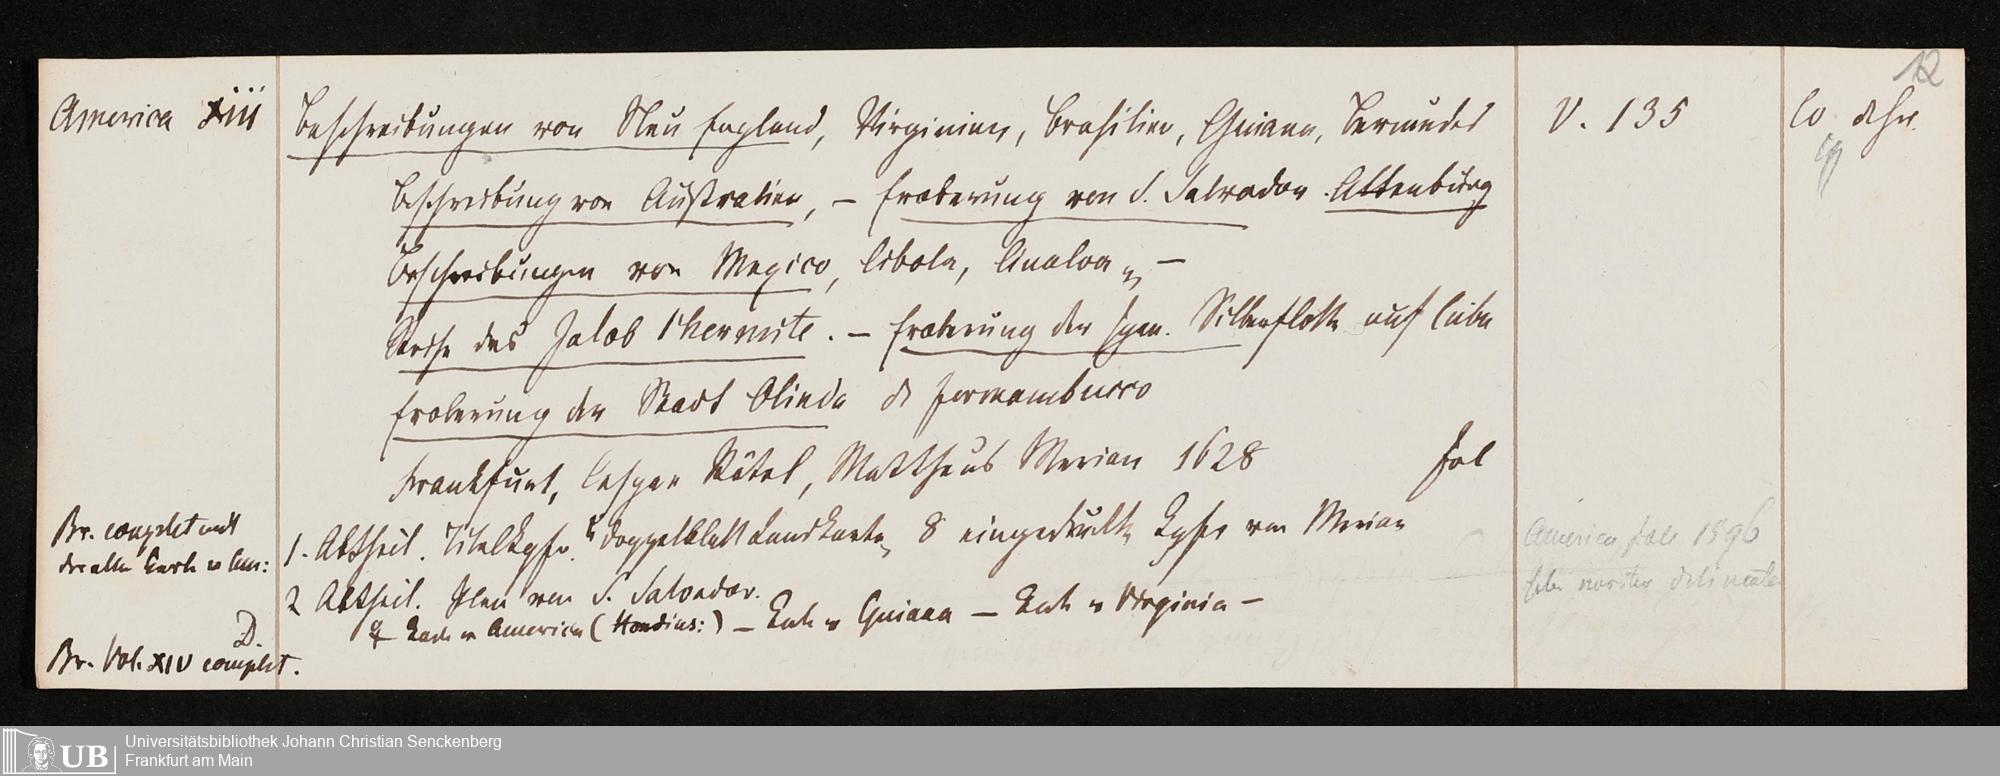 12
America XIII
Beschreibungen von Neu England, Virginien, Brasilien, Guiana, Bermudes
V. 135
Beschreibung von Australien, – Eroberung von S. Salvador. Altenburg
Beschreibungen von Mexico, Cibola, Cinaloa –
Reise des Jakob l'hermite. – Eroberung der span. Silberflotte auf Cuba
Eroberung der Stadt Olinda de Fernambucco
Frankfurt, Caspar Rötel, Mattheus Merian 1628 fol
Br. complet mit
der alten Karte v Am:
1. Abtheil. Titelkpfr. 1 Doppelblatt Landkarte, 8 eingedruckte Kpfr von Merian
2 Abtheil. Plan von S. Salvador.
Karte v America (Hondius:) – Karte v Guiana – Karte v Virginia –
D.
Br. Vol. XIV complet.
America 1596
noviter delineata
Universitätsbibliothek Johann Christian Senckenberg
Frankfurt am Main
UB